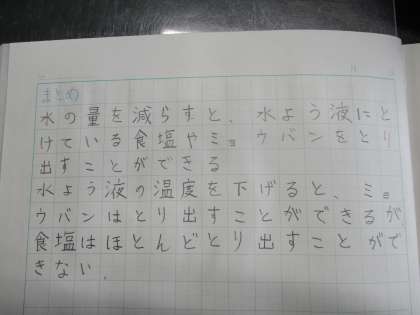 まとめ
水の量を減らすと、水よう液にと
けている食塩やミョウバンをとり
出すことができる
水よう液の温度を下げると、ミョ
ウバンはとり出すことができるが
食塩はほとんどとり出すことがで
きない.